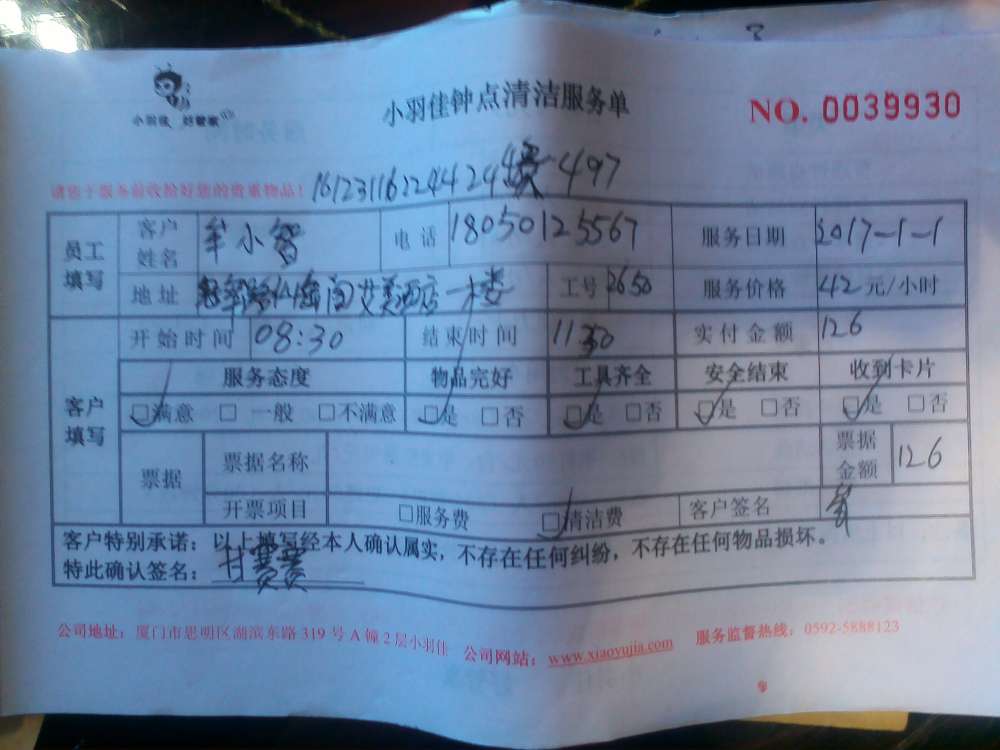 小羽佳 好管家
小羽佳钟点清洁服务单
NO. 0039930
请您于服务前收拾好您的贵重物品！
16123116224424 497
员工填写 客户姓名 小智 电话 18050125567 服务日期 2017-1-1
地址 艾美酒店一楼 工号 2650 服务价格 42 元/小时
客户填写 开始时间 08:30 结束时间 11:30 实付金额 126
服务态度 物品完好 工具齐全 安全结束 收到卡片
□满意 □一般 □不满意 □是 □否 □是 □否 □是 □否 □是 □否
票据 票据名称 票据金额 126
开票项目 □服务费 □清洁费 客户签名
客户特别承诺：以上填写经本人确认属实，不存在任何纠纷，不存在任何物品损坏。
特此确认签名：甘赛赛
公司地址：厦门市思明区湖滨东路 319 号 A 幢 2 层小羽佳 公司网站：www.xiaoyujia.com 服务监督热线：0592-5888123